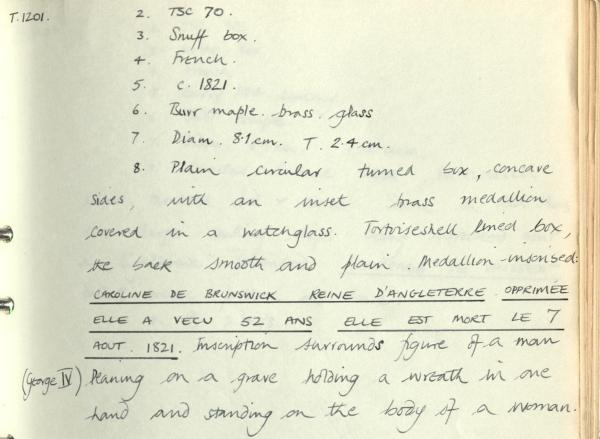 T.1201.
2. TSC 70.
3. Snuff box.
4. French.
5. c. 1821.
6. Burr maple. brass. glass
7. Diam. 8.1cm. T. 2.4cm.
8. Plain circular turned box, concave
sides, with an inset brass medallion
covered in a watchglass. Tortoiseshell lined box,
the back smooth and plain. Medallion inscribed:
CAROLINE DE BRUNSWICK REINE D'ANGLETERRE OPPRIMÉE
ELLE A VECU 52 ANS ELLE EST MORT LE 7
AOUT. 1821. Inscription surrounds figure of a man
(George IV) leaning on a grave holding a wreath in one
hand and standing on the body of a woman.